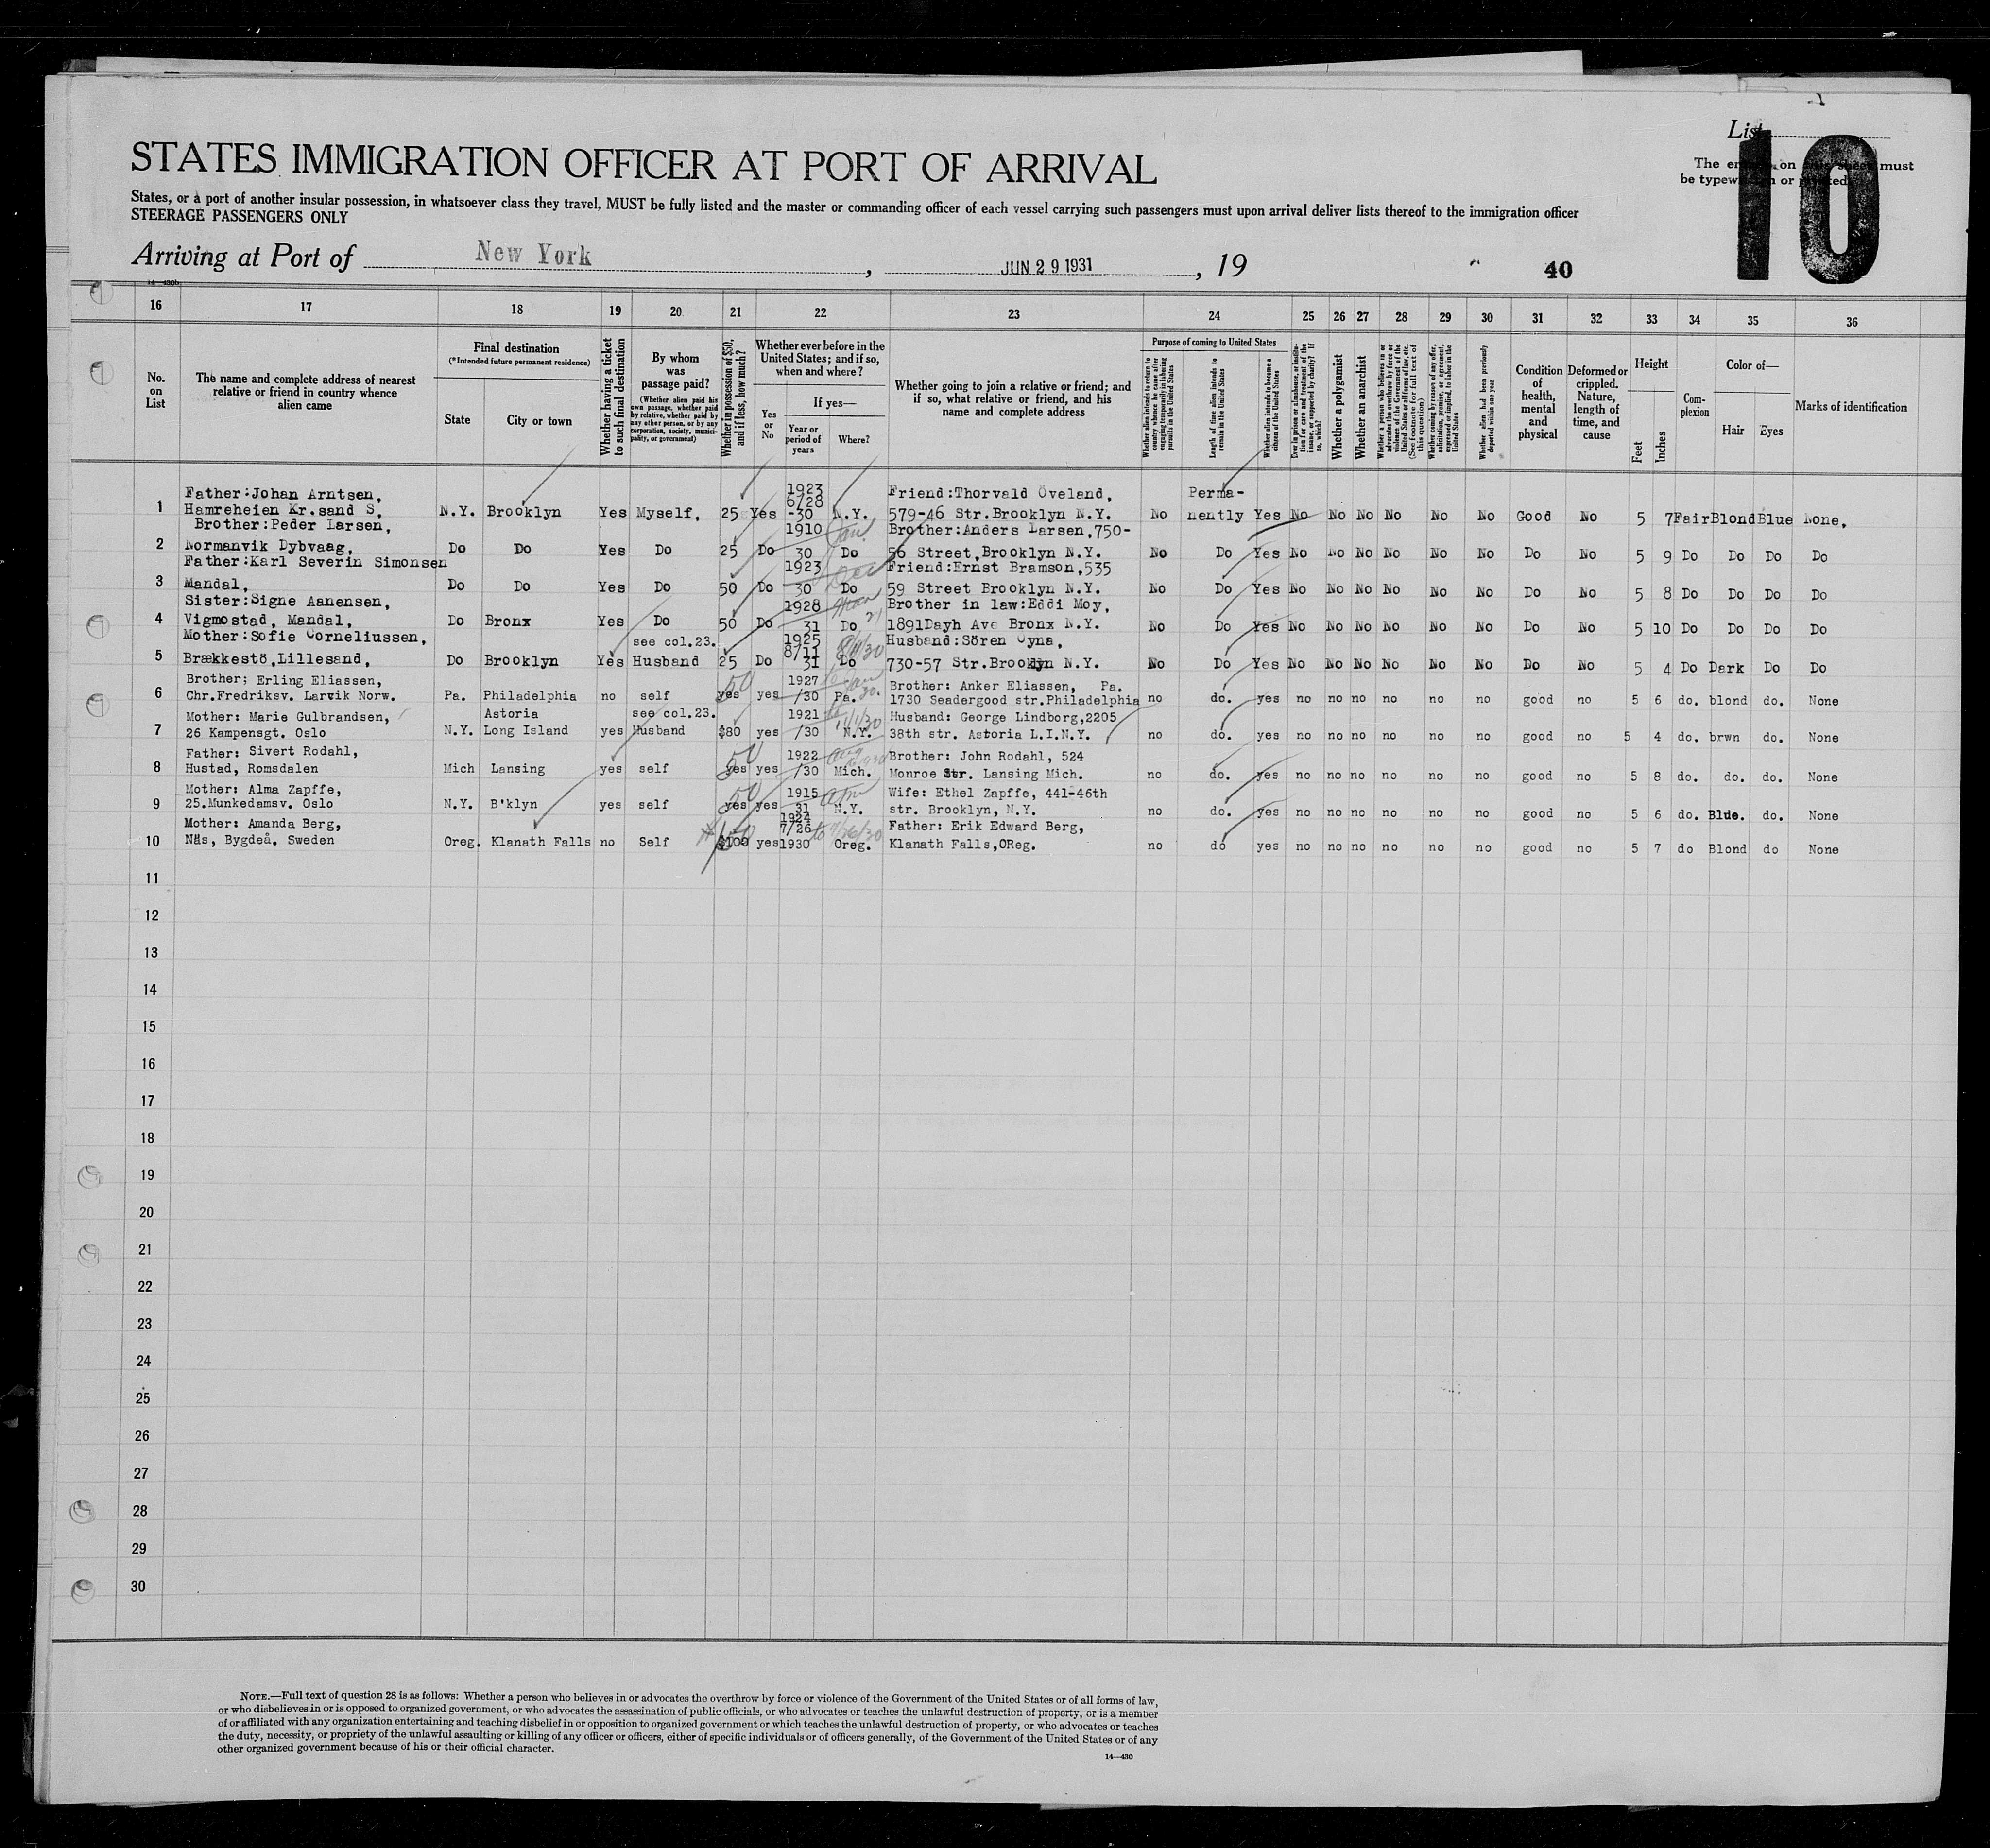 List
10
The en on this sheet must
be typewritten or printed
STATES IMMIGRATION OFFICER AT PORT OF ARRIVAL
States, or a port of another insular possession, in whatsoever class they travel, MUST be fully listed and the master or commanding officer of each vessel carrying such passengers must upon arrival deliver lists thereof to the immigration officer
STEERAGE PASSENGERS ONLY
Arriving at Port of New York, JUN 29 1931, 19
40
14—430b
16 17 18 19 20 21 22 23 24 25 26 27 28 29 30 31 32 33 34 35 36
No. on List
The name and complete address of nearest relative or friend in country whence alien came
Final destination
(*Intended future permanent residence)
State
City or town
Whether having a ticket to such final destination
By whom was passage paid?
(Whether alien paid his own passage, whether paid by relative, whether paid by any other person, or by any corporation, society, municipality, or government)
Whether in possession of $50, and if less, how much?
Whether ever before in the United States; and if so, when and where?
Yes or No
If yes—
Year or period of years
Where?
Whether going to join a relative or friend; and if so, what relative or friend, and his name and complete address
Purpose of coming to United States
Whether alien intends to return to country whence he came after engaging temporarily in laboring pursuits in the United States
Length of time alien intends to remain in the United States
Whether alien intends to become a citizen of the United States
Ever in prison or almshouse, or institution for care and treatment of the insane, or supported by charity? If so, which?
Whether a polygamist
Whether an anarchist
Whether a person who believes in or advocates the overthrow by force or violence of the Government of the United States or all forms of law, etc. (See footnote for full text of this question)
Whether coming by reason of any offer, solicitation, promise, or agreement, expressed or implied, to labor in the United States
Whether alien had been previously deported within one year
Condition of health, mental and physical
Deformed or crippled. Nature, length of time, and cause
Height
Feet
Inches
Complexion
Color of—
Hair
Eyes
Marks of identification
Father:Johan Arntsen, 1923 6/28 Friend:Thorvald Öveland, Perma-
1 Hamreheien Kr.sand S, N.Y. Brooklyn Yes Myself, 25 Yes -30 N.Y. 579-46 Str.Brooklyn N.Y. No nently Yes No No No No No No Good No 5 7 Fair Blond Blue None,
Brother:Peder Larsen, 1910 Jan Brother:Anders Larsen,750-
2 Normanvik Dybvaag, Do Do Yes Do 25 Do 30 Do 56 Street,Brooklyn N.Y. No Do Yes No No No No No No Do No 5 9 Do Do Do Do
Father:Karl Severin Simonsen 1923 Dec Friend:Ernst Bramson,535
3 Mandal, Do Do Yes Do 50 Do 30 Do 59 Street Brooklyn N.Y. No Do Yes No No No No No No Do No 5 8 Do Do Do Do
Sister:Signe Aanensen, 1928 Brother in law:Eddi Moy,
4 Vigmostad, Mandal, Do Bronx Yes Do 50 Do 31 Do 1891Dayh Ave Bronx N.Y. No Do Yes No No No No No No Do No 5 10 Do Do Do Do
Mother:Sofie Corneliussen, see col.23. 1925 8/11 Husband:Sören Oyna,
5 Brækkestö,Lillesand, Do Brooklyn Yes Husband 25 Do 31 Do 730-57 Str.Brooklyn N.Y. No Do Yes No No No No No No Do No 5 4 Do Dark Do Do
Brother; Erling Eliassen, 50 1927 Brother: Anker Eliassen, Pa.
6 Chr.Fredriksv. Larvik Norw. Pa. Philadelphia no self yes yes /30 Pa. 1730 Seadergood str.Philadelphia no do. yes no no no no no no good no 5 6 do. blond do. None
Mother: Marie Gulbrandsen, Astoria see col.23. 1921 11/1/30 Husband: George Lindborg,2205
7 26 Kampensgt. Oslo N.Y. Long Island yes Husband $80 yes /30 N.Y. 38th str. Astoria L.I.N.Y. no do. yes no no no no no no good no 5 4 do. brwn do. None
Father: Sivert Rodahl, 50 1922 Aug Brother: John Rodahl, 524
8 Hustad, Romsdalen Mich Lansing yes self yes yes /30 Mich. Monroe Str. Lansing Mich. no do. yes no no no no no no good no 5 8 do. do. do. None
Mother: Alma Zapffe, 50 1915 Wife: Ethel Zapffe, 441-46th
9 25.Munkedamsv. Oslo N.Y. B'klyn yes self yes yes 31 N.Y. str. Brooklyn, N.Y. no do. yes no no no no no no good no 5 6 do. Blue. do. None
Mother: Amanda Berg, 1924 7/26 to 7/26/30 Father: Erik Edward Berg,
10 Näs, Bygdeå. Sweden Oreg. Klanath Falls no Self $100 yes 1930 Oreg. Klanath Falls,OReg. no do yes no no no no no no good no 5 7 do Blond do None
11
12
13
14
15
16
17
18
19
20
21
22
23
24
25
26
27
28
29
30
NOTE.—Full text of question 28 is as follows: Whether a person who believes in or advocates the overthrow by force or violence of the Government of the United States or of all forms of law,
or who disbelieves in or is opposed to organized government, or who advocates the assassination of public officials, or who advocates or teaches the unlawful destruction of property, or is a member
of or affiliated with any organization entertaining and teaching disbelief in or opposition to organized government or which teaches the unlawful destruction of property, or who advocates or teaches
the duty, necessity, or propriety of the unlawful assaulting or killing of any officer or officers, either of specific individuals or of officers generally, of the Government of the United States or of any
other organized government because of his or their official character.
14—430